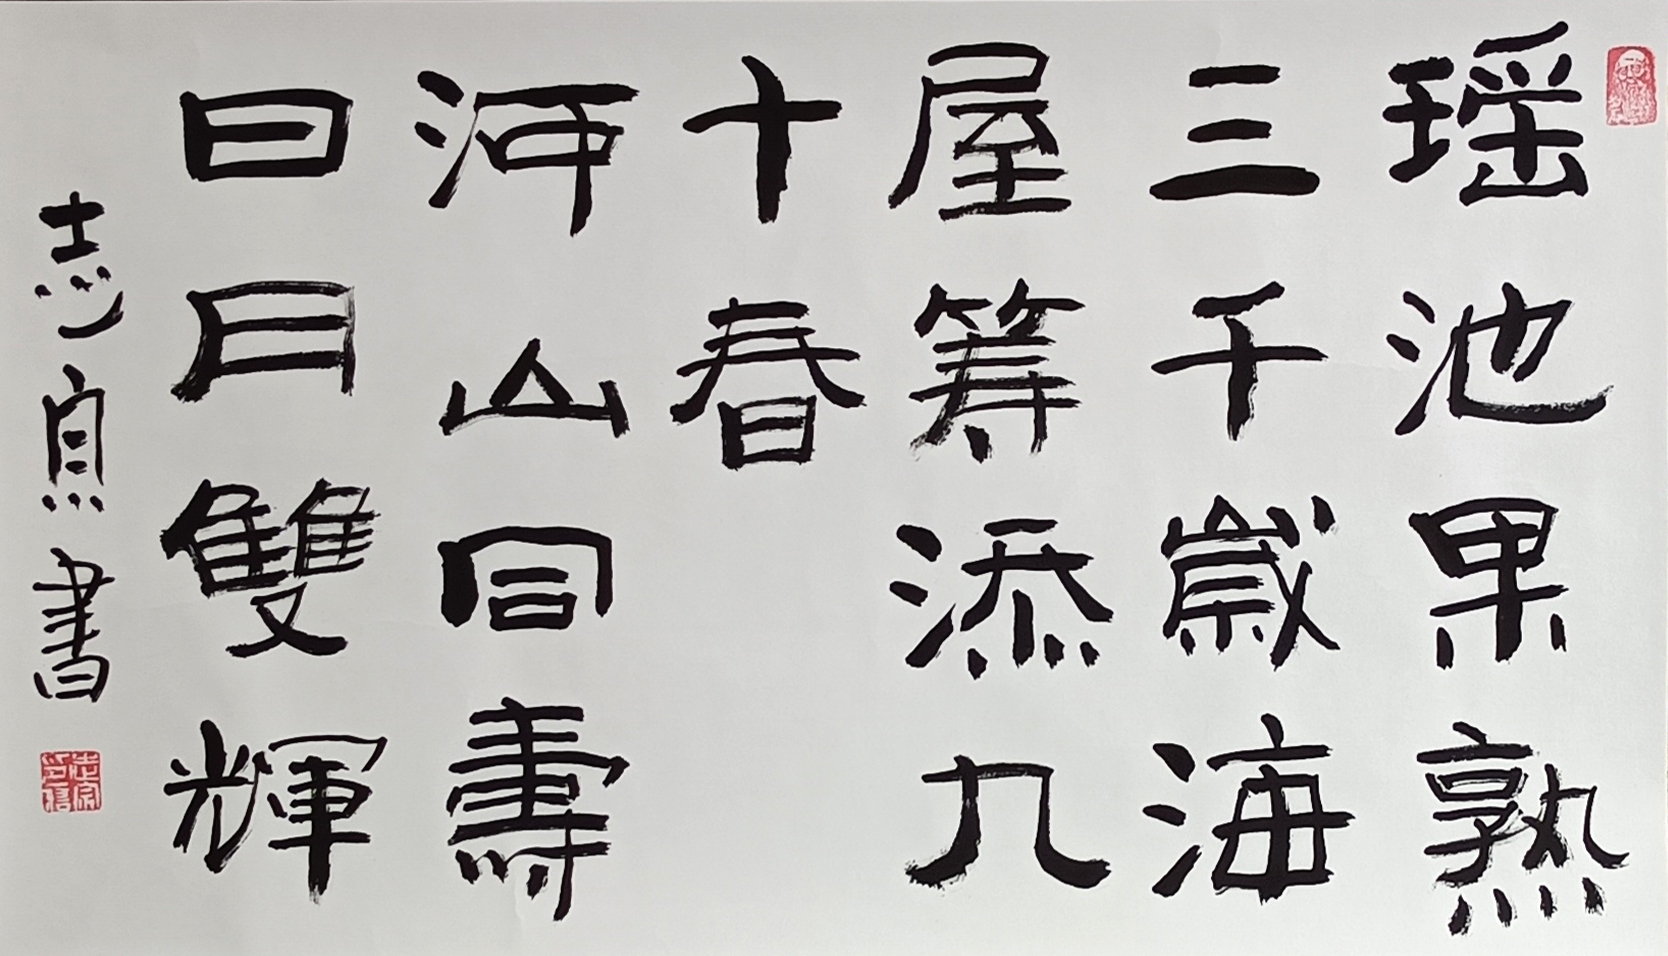 瑶池果熟
三千歲海
屋筹添九
十春
河山同壽
日月雙輝
志貞書